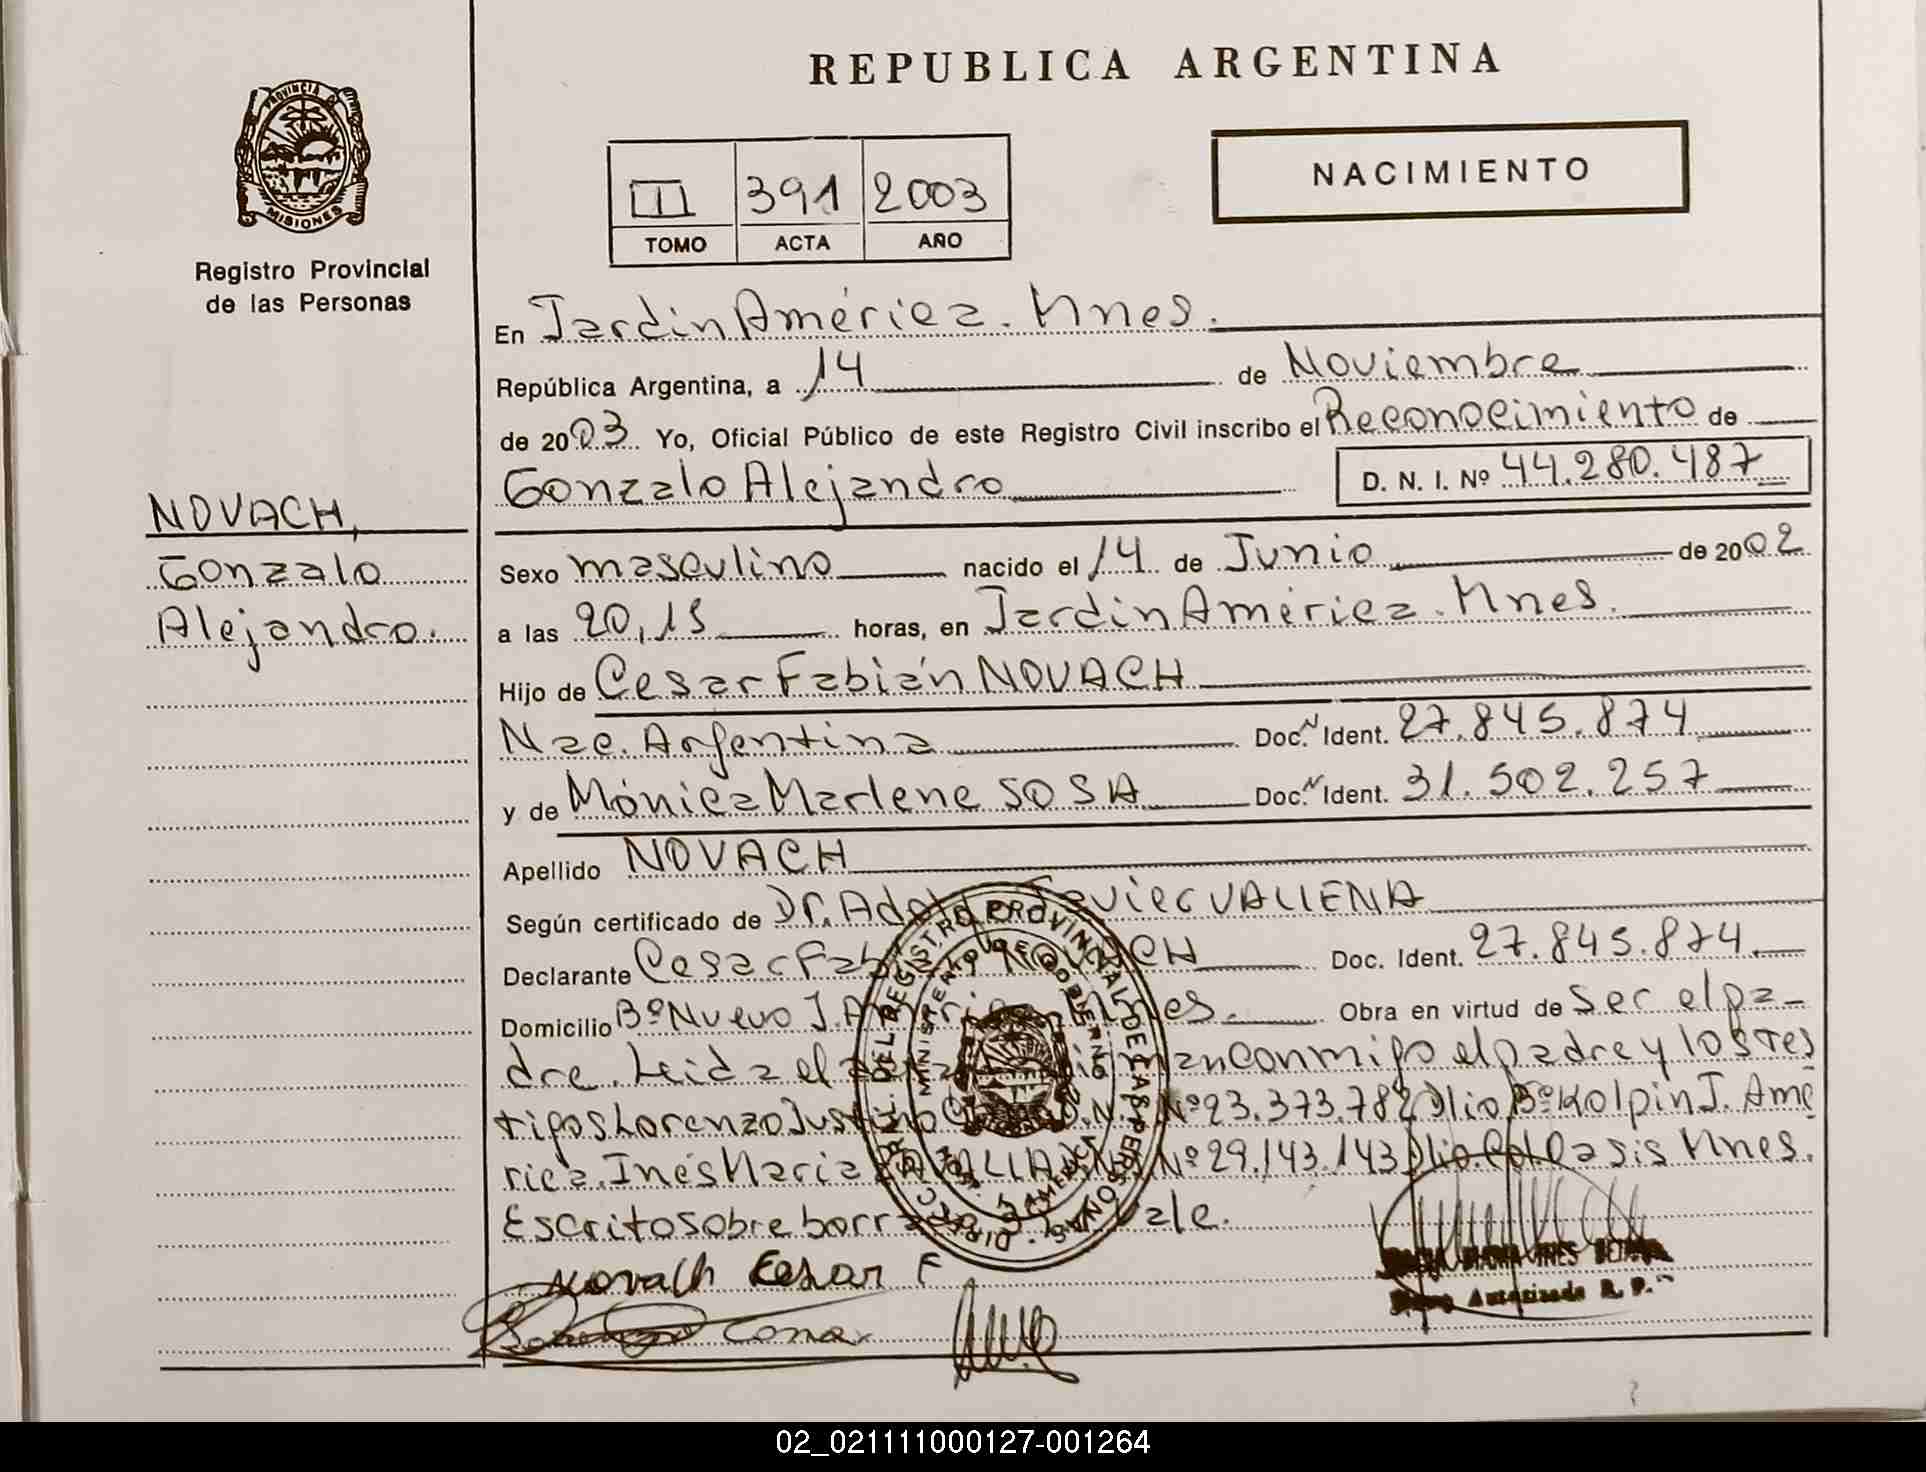 REPUBLICA ARGENTINA
PROVINCIA DE
MISIONES
Registro Provincial
de las Personas
II 391 2003
TOMO ACTA AÑO
NACIMIENTO
En Jardin América. Mnes.
República Argentina, a 14 de Noviembre
de 2003 Yo, Oficial Público de este Registro Civil inscribo el Reconocimiento de
Gonzalo Alejandro D. N. I. Nº 44.280.487
NOVACH,
Gonzalo
Alejandro.
Sexo masculino nacido el 14 de Junio de 2002
a las 20,15 horas, en Jardin América. Mnes.
Hijo de Cesar Fabián NOVACH
Nac. Argentina Doc. N Ident. 27.845.874
y de Mónica Marlene SOSA Doc. N Ident. 31.502.257
Apellido NOVACH
Según certificado de Dr. Javier VALLENA
Declarante Cesar Doc. Ident. 27.845.874
Domicilio Bº Nuevo J. Mnes. Obra en virtud de Ser el pa-
dre. Leida el conmigo el padre y los tes
tigos Lorenzo Justino Nº 23.373.782 Dlio Bº Kolpin J. Amé
rica. Inés Maria Nº 29.143.143 Dlio. Oasis Mnes.
Escrito sobre Vale.
DIRECC. GRAL. DEL REGISTRO PROVINCIAL DE LAS PERSONAS
MINISTERIO DE GOBIERNO
Novach Cesar F
Autorizada R. P.
02_021111000127-001264